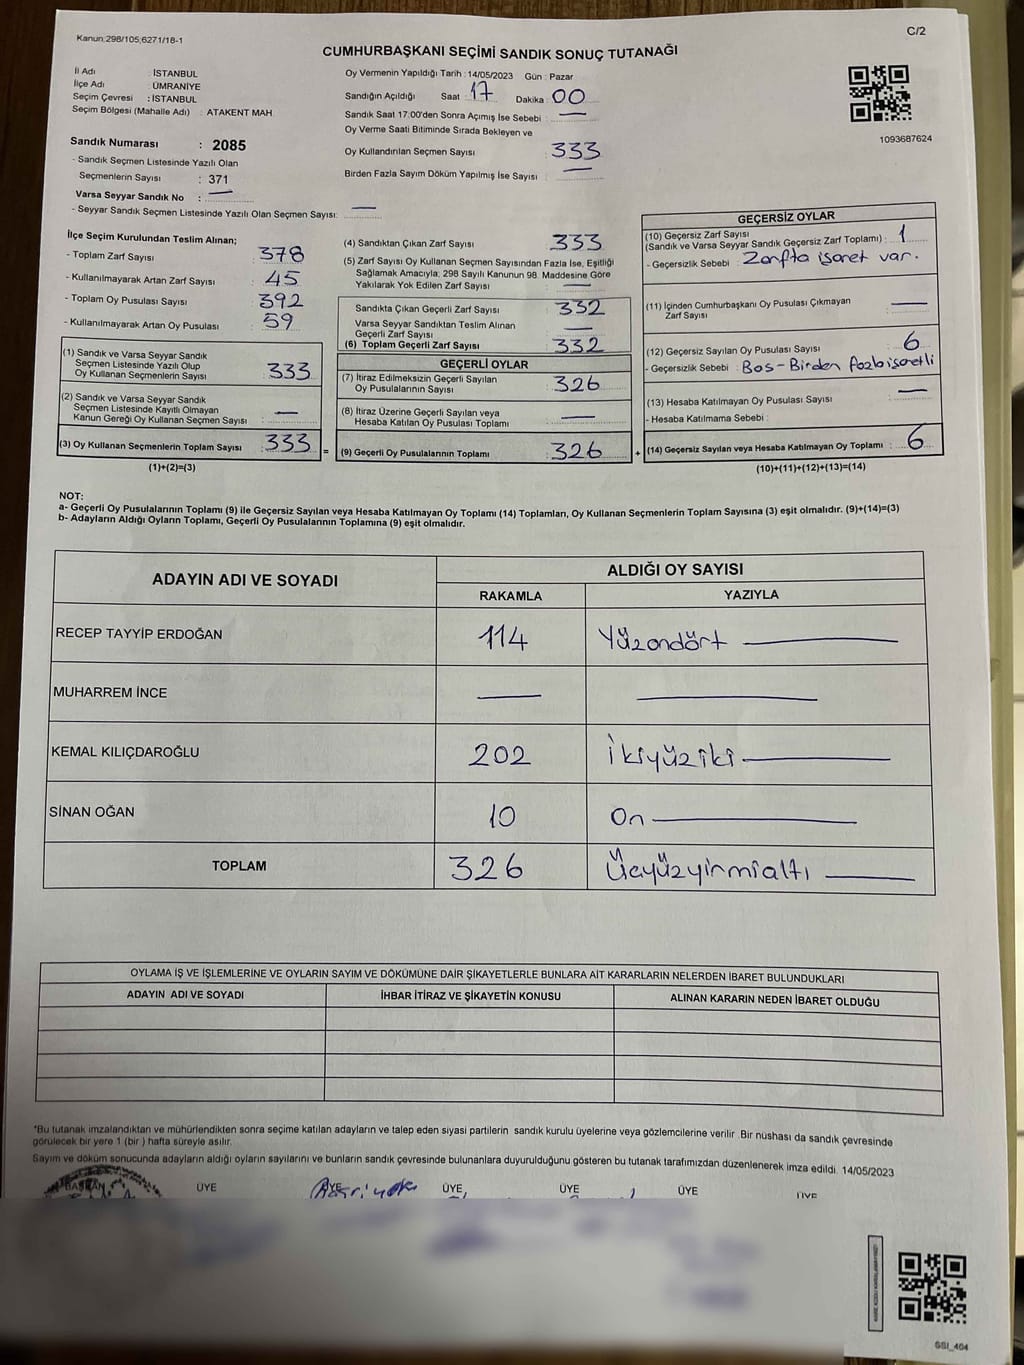 Kanun:298/105,6271/18-1
C/2
CUMHURBAŞKANI SEÇİMİ SANDIK SONUÇ TUTANAĞI
İl Adı : İSTANBUL
İlçe Adı : ÜMRANİYE
Seçim Çevresi : İSTANBUL
Seçim Bölgesi (Mahalle Adı) : ATAKENT MAH
Oy Vermenin Yapıldığı Tarih : 14/05/2023 Gün : Pazar
Sandığın Açıldığı Saat : 17 Dakika : 00
Sandık Saat 17:00'den Sonra Açımış İse Sebebi : —
Oy Verme Saati Bitiminde Sırada Bekleyen ve
Oy Kullandırılan Seçmen Sayısı : 333
Birden Fazla Sayım Döküm Yapılmış İse Sayısı : —
1093687624
Sandık Numarası : 2085
- Sandık Seçmen Listesinde Yazılı Olan
Seçmenlerin Sayısı : 371
Varsa Seyyar Sandık No : —
- Seyyar Sandık Seçmen Listesinde Yazılı Olan Seçmen Sayısı: —
İlçe Seçim Kurulundan Teslim Alınan;
- Toplam Zarf Sayısı : 378
- Kullanılmayarak Artan Zarf Sayısı : 45
- Toplam Oy Pusulası Sayısı : 392
- Kullanılmayarak Artan Oy Pusulası : 59
(1) Sandık ve Varsa Seyyar Sandık
Seçmen Listesinde Yazılı Olup
Oy Kullanan Seçmenlerin Sayısı : 333
(2) Sandık ve Varsa Seyyar Sandık
Seçmen Listesinde Kayıtlı Olmayan
Kanun Gereği Oy Kullanan Seçmen Sayısı : —
(3) Oy Kullanan Seçmenlerin Toplam Sayısı : 333
(1)+(2)=(3)
=
(4) Sandıktan Çıkan Zarf Sayısı : 333
(5) Zarf Sayısı Oy Kullanan Seçmen Sayısından Fazla İse, Eşitliği
Sağlamak Amacıyla, 298 Sayılı Kanunun 98. Maddesine Göre
Yakılarak Yok Edilen Zarf Sayısı : —
Sandıkta Çıkan Geçerli Zarf Sayısı : 332
Varsa Seyyar Sandıktan Teslim Alınan
Geçerli Zarf Sayısı : —
(6) Toplam Geçerli Zarf Sayısı : 332
GEÇERLİ OYLAR
(7) İtiraz Edilmeksizin Geçerli Sayılan
Oy Pusulalarının Sayısı : 326
(8) İtiraz Üzerine Geçerli Sayılan veya
Hesaba Katılan Oy Pusulası Toplamı : —
(9) Geçerli Oy Pusulalarının Toplamı : 326
+
GEÇERSİZ OYLAR
(10) Geçersiz Zarf Sayısı
(Sandık ve Varsa Seyyar Sandık Geçersiz Zarf Toplamı) : 1
- Geçersizlik Sebebi : Zarfta işaret var.
(11) İçinden Cumhurbaşkanı Oy Pusulası Çıkmayan
Zarf Sayısı : —
(12) Geçersiz Sayılan Oy Pusulası Sayısı : 6
- Geçersizlik Sebebi : Boş-Birden fazla işaretli
(13) Hesaba Katılmayan Oy Pusulası Sayısı : —
- Hesaba Katılmama Sebebi :
(14) Geçersiz Sayılan veya Hesaba Katılmayan Oy Toplamı : 6
(10)+(11)+(12)+(13)=(14)
NOT:
a- Geçerli Oy Pusulalarının Toplamı (9) ile Geçersiz Sayılan veya Hesaba Katılmayan Oy Toplamı (14) Toplamları, Oy Kullanan Seçmenlerin Toplam Sayısına (3) eşit olmalıdır. (9)+(14)=(3)
b- Adayların Aldığı Oyların Toplamı, Geçerli Oy Pusulalarının Toplamına (9) eşit olmalıdır.
ADAYIN ADI VE SOYADI
ALDIĞI OY SAYISI
RAKAMLA YAZIYLA
RECEP TAYYİP ERDOĞAN 114 Yüzondört —
MUHARREM İNCE — —
KEMAL KILIÇDAROĞLU 202 İkiyüziki —
SİNAN OĞAN 10 On —
TOPLAM 326 Üçyüzyirmialtı —
OYLAMA İŞ VE İŞLEMLERİNE VE OYLARIN SAYIM VE DÖKÜMÜNE DAİR ŞİKAYETLERLE BUNLARA AİT KARARLARIN NELERDEN İBARET BULUNDUKLARI
ADAYIN ADI VE SOYADI İHBAR İTİRAZ VE ŞİKAYETİN KONUSU ALINAN KARARIN NEDEN İBARET OLDUĞU
*Bu tutanak imzalandıktan ve mühürlendikten sonra seçime katılan adayların ve talep eden siyasi partilerin sandık kurulu üyelerine veya gözlemcilerine verilir. Bir nüshası da sandık çevresinde
görülecek bir yere 1 (bir) hafta süreyle asılır.
Sayım ve döküm sonucunda adayların aldığı oyların sayılarını ve bunların sandık çevresinde bulunanlara duyurulduğunu gösteren bu tutanak tarafımızdan düzenlenerek imza edildi. 14/05/2023
BAŞKAN ÜYE ÜYE ÜYE ÜYE ÜYE ÜYE
SSI_404